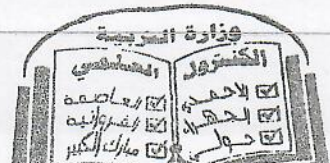 وزارة التربية
الكنترول
الأحمدي
الجهراء
حولي
العاصمة
الفروانية
مبارك الكبير